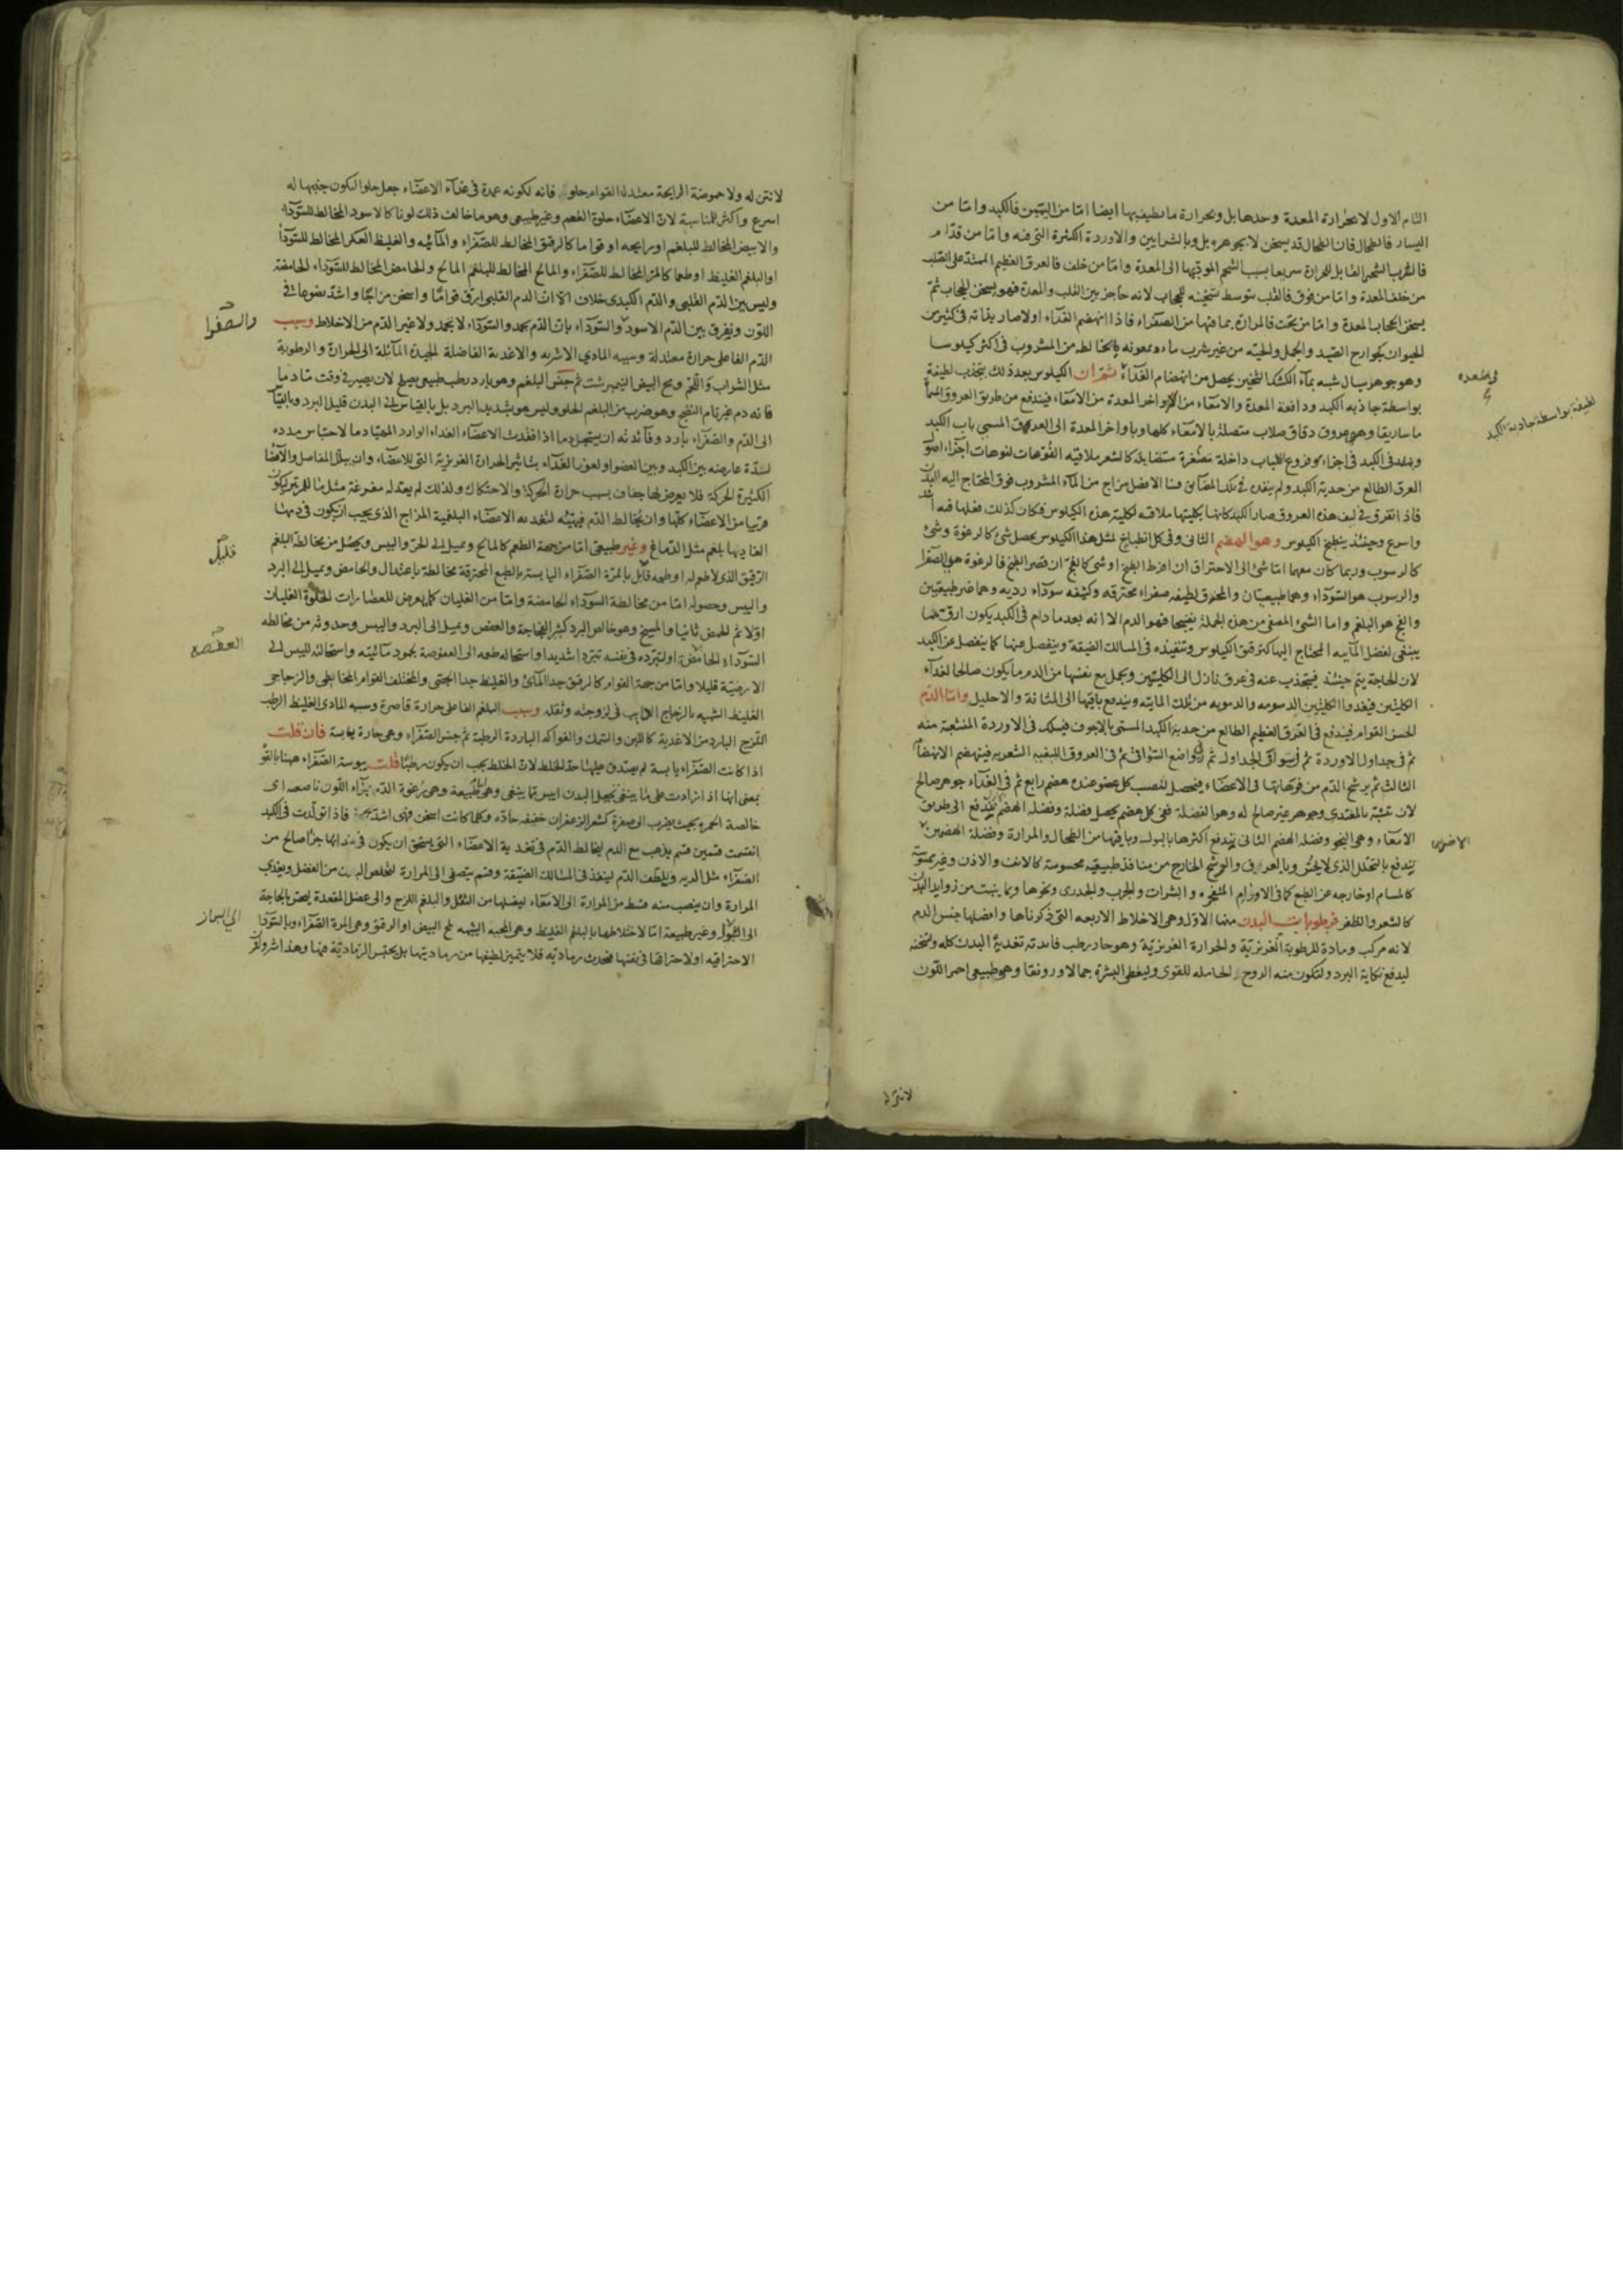 التام الاول لا بحرارة المعدة وحدها بل وبحرارة ما يطيف بها ايضا امّا من اليمين فالكبد وامّا من
اليسار فالطحال فان الطحال قد يسخن لا بجوهره بل وبالشرايين والاوردة الكثيرة التى فيه وامّا من قدّام
فالثرب الشحمى القابل للحرارة سريعا بسبب الشحم المودّيها الى المعدة وامّا من خلف فالعرق العظيم الممتدّ على الصلب
من خلف المعدة وامّا من فوق فالقلب بتوسط تسخينه للحجاب لانه حاجز بين القلب والمعدة فهو يسخن الحجاب ثمّ
يسخن الحجاب المعدة وامّا من تحت فالمرارة بما فيها من الصفرآء فاذا انهضم الغذآء اولا صار بذاته فى كثير من
الحيوان كجوارح الصّيد والجمل والحيّه من غير شرب ماء وبمعونه ما يخالطه من المشروب فى اكثره كيلوسا
وهو جوهر سيال شبيه بمآء الكشك الثخين يحصل من انهضام الغذآء ثمّ ان الكيلوس بعد ذلك ينجذب لطيفه
بواسطة جاذبه الكبد ودافعة المعدة والامعآء من اواخر المعدة من الامعآء فيندفع من طريق العروق المسمّاة
ماساريقا وهى عروق دقاق صلاب متصلة بالامعآء كلها وباواخر المعدة الى العرق المسمى باب الكبد
وينفذ فى الكبد فى اجزاء وفروع للباب داخلة متصغرة متضايلة كالشعر ملاقيه الفوّهات لفوهات اجزآء اصول
العرق الطالع من حدبة الكبد ولم ينفذ فى تلك المضايق منا الا فضل مزاج من المآء المشروب فوق المحتاج اليه للبدن
فاذا تفرق فى ليف هذه العروق صار الكبد كانها بكليتها ملاقيه لكليته هذه الكيلوس فكان كذلك فعلها فيه اشد
واسرع وحينئذ ينطبخ الكيلوس وهو الهضم الثانى وفى كل انطباخ لمثل هذا الكيلوس يحصل شئ كالرغوة وشئ
كالرسوب وربما كان معهما امّا شئ الى الاحتراق ان افرط الطبخ او شئ كالفج ان قصر الطبخ فالرغوة هى الصّفرا
والرسوب هو السّودآء وهما طبيعيّتان والمحترق لطيفه صفراء محترقه وكثيفه سودآء رديه وهما غير طبيعيّتين
والفج هو البلغم واما الشئ المصفى من هذه الجملة نضيجا فهو الدم الا انه بعد ما دام فى الكبد يكون ارقّ ممّا
ينبغى لفضل المآئية المحتاج اليها لترقيق الكيلوس وتنفيذه فى المسالك الضيقة وينفصل عنها كما ينفصل عن الكبد
لان الحاجة يتم حينئذ فينجذب عنه فى عرق نازل الى الكليتين ويحمل مع نفسها من الدم ما يكون صالحا لغذآء
الكليتين فيغذوا الكليتين الدسومه والدمويه من تلك المايئه ويندفع باقيها الى المثانة والاحليل وامّا الدّم
الحسن القوام فيندفع فى العرق العظيم الطالع من حدبة الكبد المسمّى بالاجوف فيسلك فى الاوردة المنشعبة منه
ثم فى جداول الاوردة ثم فى سواقى الجداول ثم فى رواضع السّواقى ثم فى العروق الليفيه الشعريه فينهضم الانهضام
الثالث ثم يرشح الدّم من فوّهاتها فى الاعضآء فيحصل لنصيب كل عضو عنده هضم رابع ثم فى الغذآء جوهر صالح
لان يتشبّه بالمغتدى وجوهر غير صالح له وهو الفضلة ففى كل هضم يحصل فضلة وفضلة الهضم يندفع الى طريق
الامعآء وهى النجو وفضلة الهضم الثانى يندفع اكثرها بالبول وباقيها من الطحال والمرارة وفضلة الهضمين
يندفع بالتحلل الذى لا يحسّ وبالعرق والوسخ الخارج من منافذ طبيعيه محسوسة كالانف والاذن وغير محسوسة
كالمسام او خارجه عن الطبع كما فى الاورام المنفجره والبثرات والجرب والجدرى ونحوها وبما ينبت من زوايد البدن
كالشعر والظفر فرطوبات البدن منها الاوّل وهى الاخلاط الاربعه التى ذكرناها وافضلها جنس الدم
لانه مركب ومادة للرطوبة الغريزيّة والحرارة الغريزيّة وهو حار رطب فايدته تغذية البدن كله وتسخنه
ليدفع نكاية البرد ولتكون منه الروح الحامله للقوى وليعطى البشرة جمالا ورونقا وهو طبيعى احمر اللون
فى المعده
لطيفه بواسطة جاذبة الكبد
الاخيرين
لا نتن له
لا نتن له ولا حموضة الرايحة معتدلة القوام حلو فانه لكونه عمدة فى غذآء الاعضّاء جعل حلوا ليكون جذبها له
اسرع واكثر للمناسبة لان الاعضآء حلوة الطعم وغير طبيعى وهو ما خالف ذلك لونا كالاسود المخالط للسّودآء
والابيض المخالط للبلغم او رايحه او قواما كالرقيق المخالط للصّفرآء والمآئيه والغليظ العكر المخالط للسّودآ
او البلغم الغليظ او طعما كالمرّ المخالط للصّفرآء والمالح المخالط للبلغم المالح والحامض المخالط للسّودآء الحامضة
وليس بين الدّم القلبى والدّم الكبدى خلاف الا انّ الدم القلبى ارقّ قوامًا واسخن مزاجًا واشدّ نصوعا فى
اللّون ويفرق بين الدّم الاسود والسّودآء بانّ الدّم يجمد والسّودآء لا يجمد ولا غير الدّم من الاخلاط وسبب
الدّم الفاعلى حرارة معتدلة وسببه المادى الاشربه والاغذية الفاضلة الجيدة المآئلة الى الحرارة والرطوبة
مثل الشراب واللّحم ومحّ البيض النيمبرشت ثم جنس البلغم وهو بارد رطب طبيعى يصلح لان يصير فى وقت مّا دما
فانه دم غير تام النضج وهو ضرب من البلغم الحلو وليس هو بشديد البرد بل بالقياس الى البدن قليل البرد وبالقياس
الى الدّم والصّفرآء بارد وفآئدته ان يستحيل دما اذا فقدت الاعضّاء الغذاء الوارد المعتاد ما لاحتباس مدده
لسدّة عارضه بين الكبد وبين العضو او لعوز الغذآء بتاثير الحرارة الغريزية التى للاعضّاء وان يبلّل المفاصل والاعضّا
الكثيرة الحركة فلا يعرض لها جفاف بسبب حرارة الحركة والاحتكاك ولذلك لم يعتد له مفرغة مثل ما للمرّتين ليكون
قريبا من الاعضّاء كلّها وان يخالط الدّم فيهيّئه لتغذيه الاعضّاء البلغمية المزاج الذى يجب ان يكون فى دمها
الغاذيها بلغم مثل الدّماغ وغير طبيعى امّا من جهة الطعم كالمالح ويميل الى الحرّ واليبس ويحصل من مخالطة البلغم
الرّقيق الذى لا طعم له او طعمه قليل بالمرّة الصّفرآء اليابسة بالطبع المحترقة مخالطة باعتدال والحامض ويميل الى البرد
واليبس وحصوله امّا من مخالطة السودآء الحامضة وامّا من الغليان كما يعرض للعصارات الحلوة الغليان
اوّلا ثم الحمض ثانيا والمسيخ وهو خالص البرد كثير الفجاجة والعفص ويميل الى البرد واليبس وحدوثه من مخالطه
السّودآء الحامضة او لتبرّده فى نفسه تبرّدا شديدا واستحاله طعمه الى العفوصة بجمود مآئيته واستحالته لليبس الى
الارضيّة قليلا وامّا من جهة القوام كالرقيق جدا المآئى والغليظ جدا الجصّى والمختلف القوام المخاطى والزجاجى
الغليظ الشبيه بالزجاج الذايب فى لزوجته وثقله وسبب البلغم الفاعلى حرارة قاصرة وسببه المادى الغليظ الرطب
اللّزج البارد من الاغذية كاللبن والسّمك والفواكه الباردة الرطبة ثم جنس الصّفرآء وهى حارة يابسة فان قلت
اذا كانت الصّفرآء يابسة لم يصدق عليها حدّ الخلط لان الخلط يجب ان يكون رطبًا قلت يبوسة الصّفرآء ههنا بالقوّة
بمعنى انها اذا زادت على ما ينبغى يجعل البدن ايبس ممّا ينبغى وهى طبيعة وهى رغوة الدّم حمرآء اللّون ناصعه اى
خالصة الحمره بحيث يضرب الى صفرة كشعر الزعفران خفيفه حادّه وكلما كانت اسخن فهى اشدّ حمرة فاذا تولّدت فى الكبد
انقسمت قسمين قسم يذهب مع الدم ليخالط الدّم فى تغذية الاعضّاء التى يستحق ان يكون فى غذائها جزءا صالح من
الصّفرآء مثل الريه ويلطّف الدّم لينفذ فى المسالك الضيّقة وقسم يتصفى الى المرارة لتخلص البدن من الفضل ويغذى
المرارة وان ينصب منه قسط من المرارة الى الامعّاء ليغسلها من الثفل والبلغم اللزج والى عضل المقعدة ليحسّ بالحاجة
الى التبرز وغير طبيعة امّا لاختلاطها بالبلغم الغليظ وهى المحيه الشبيهه بمح البيض او الرقيق وهى المرة الصّفرآء وبالسّودآ
الاحتراقيه او لاحتراقها فى نفسها فتحدث رمادية فلا يتميز لطيفها من رماديتها بل يحتبس الرماديّة فيها وهذا اشرّ والمرّ
والصفرا
قليل
العفصه
الى البراز